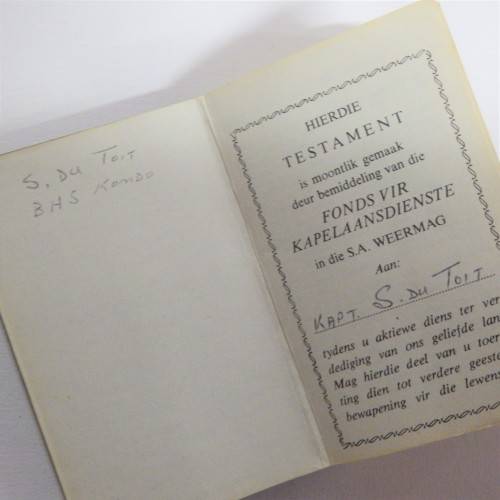 S. DU TOIT
BHS KOMDO
HIERDIE
TESTAMENT
is moontlik gemaak
deur bemiddeling van die
FONDS VIR
KAPELAANSDIENSTE
in die S.A. WEERMAG
Aan:
KAPT. S. DU TOIT
tydens u aktiewe diens ter ver
dediging van ons geliefde lan
Mag hierdie deel van u toer
ting dien tot verdere geeste
bewapening vir die lewens